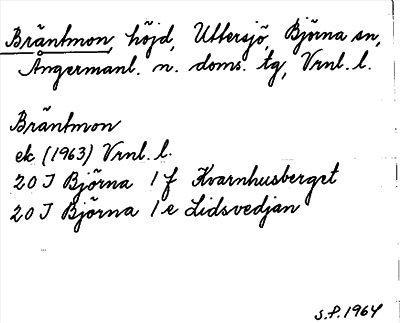 Bräntmon, höjd, Uttersjö, Björna sn,
Ångermanl. n. doms. tg, Vrnl. l.
Bräntmon
ek (1963) Vrnl. l.
20 J Björna 1 f Kvarnhusberget
20 J Björna 1 e Lidsvedjan
S.P. 1964